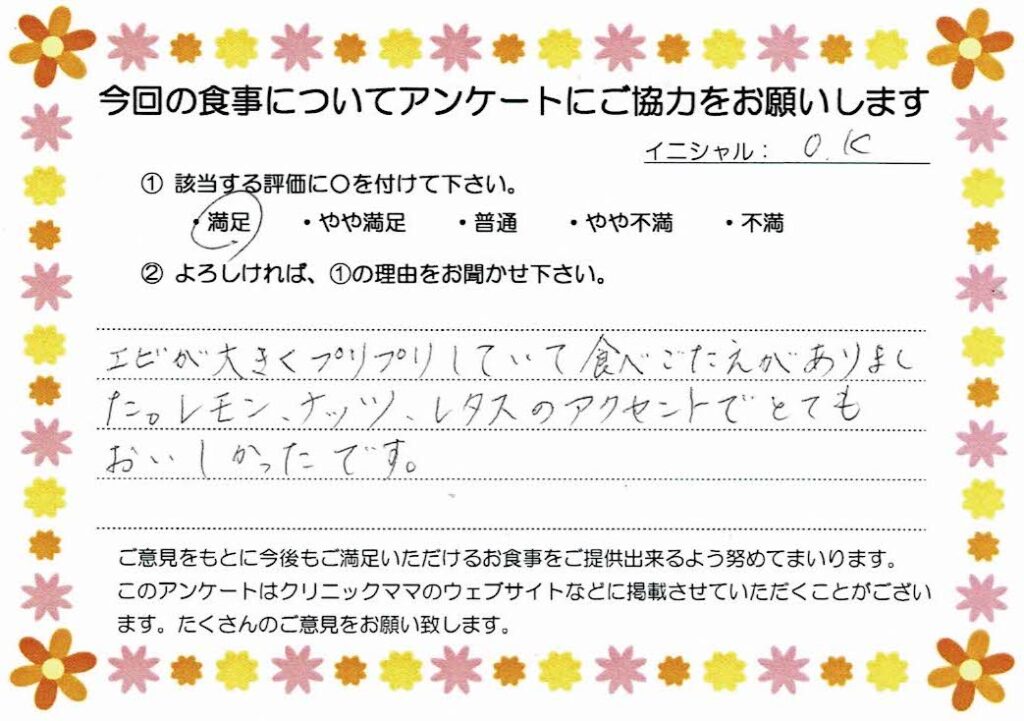 今回の食事についてアンケートにご協力をお願いします
イニシャル： O.K
① 該当する評価に〇を付けて下さい。
・満足 ・やや満足 ・普通 ・やや不満 ・不満
② よろしければ、①の理由をお聞かせ下さい。
エビが大きくプリプリしていて食べごたえがありまし
た。レモン、ナッツ、レタスのアクセントでとても
おいしかったです。
ご意見をもとに今後もご満足いただけるお食事をご提供出来るよう努めてまいります。
このアンケートはクリニックママのウェブサイトなどに掲載させていただくことがござい
ます。たくさんのご意見をお願い致します。